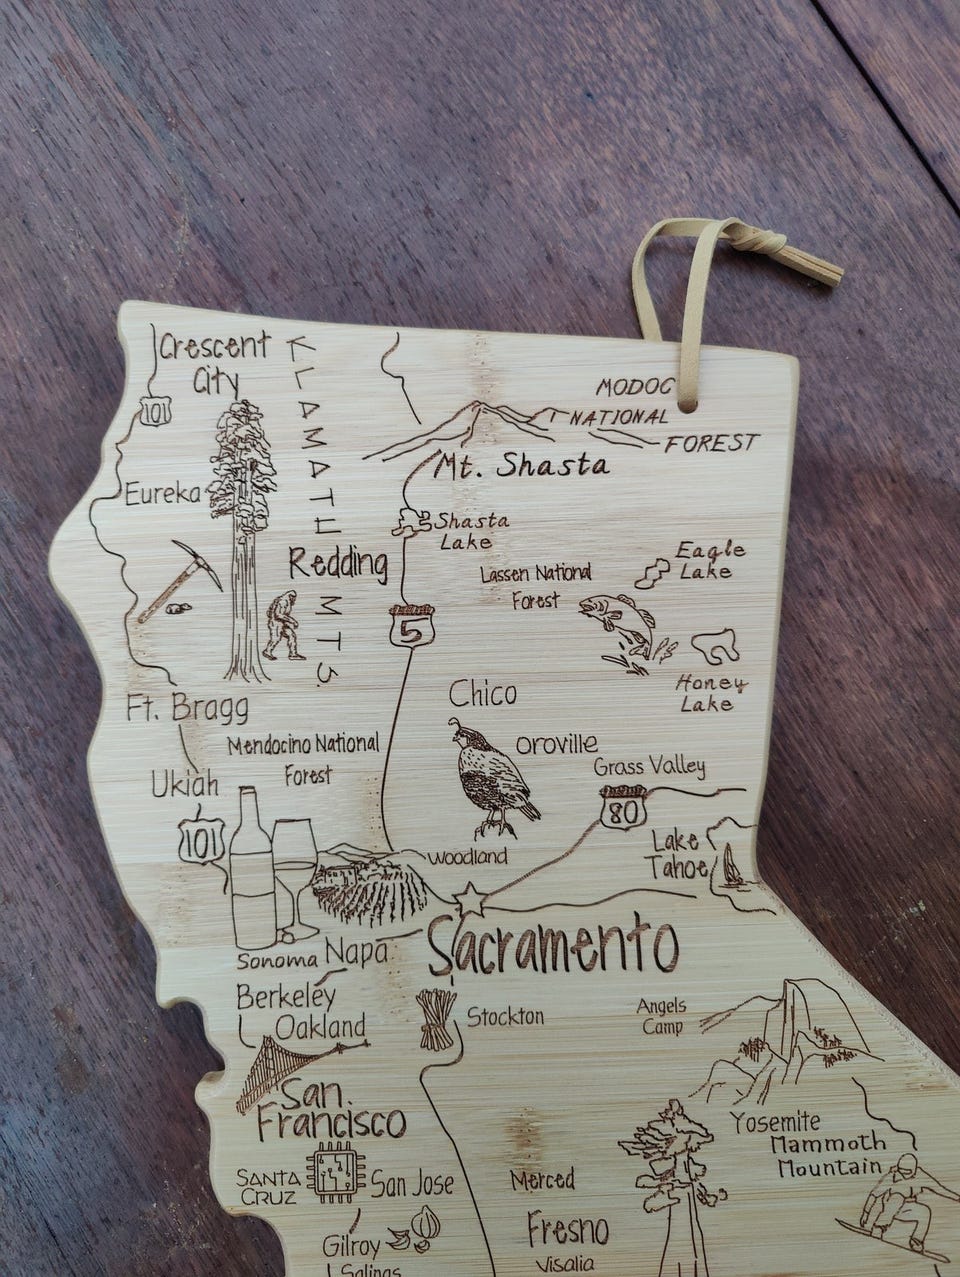 Crescent
City
101
KLAMATH MTS.
MODOC
NATIONAL
FOREST
Mt. Shasta
Eureka
Shasta
Lake
Redding
Lassen National
Forest
Eagle
Lake
5
Honey
Lake
Chico
Ft. Bragg
Mendocino National
Forest
Oroville
Grass Valley
Ukiah
80
101
Woodland
Lake
Tahoe
Sacramento
Sonoma
Napa
Berkeley
Oakland
Stockton
Angels
Camp
San
Francisco
Yosemite
Mammoth
Mountain
SANTA
CRUZ
San Jose
Merced
Fresno
Gilroy
Visalia
Salinas